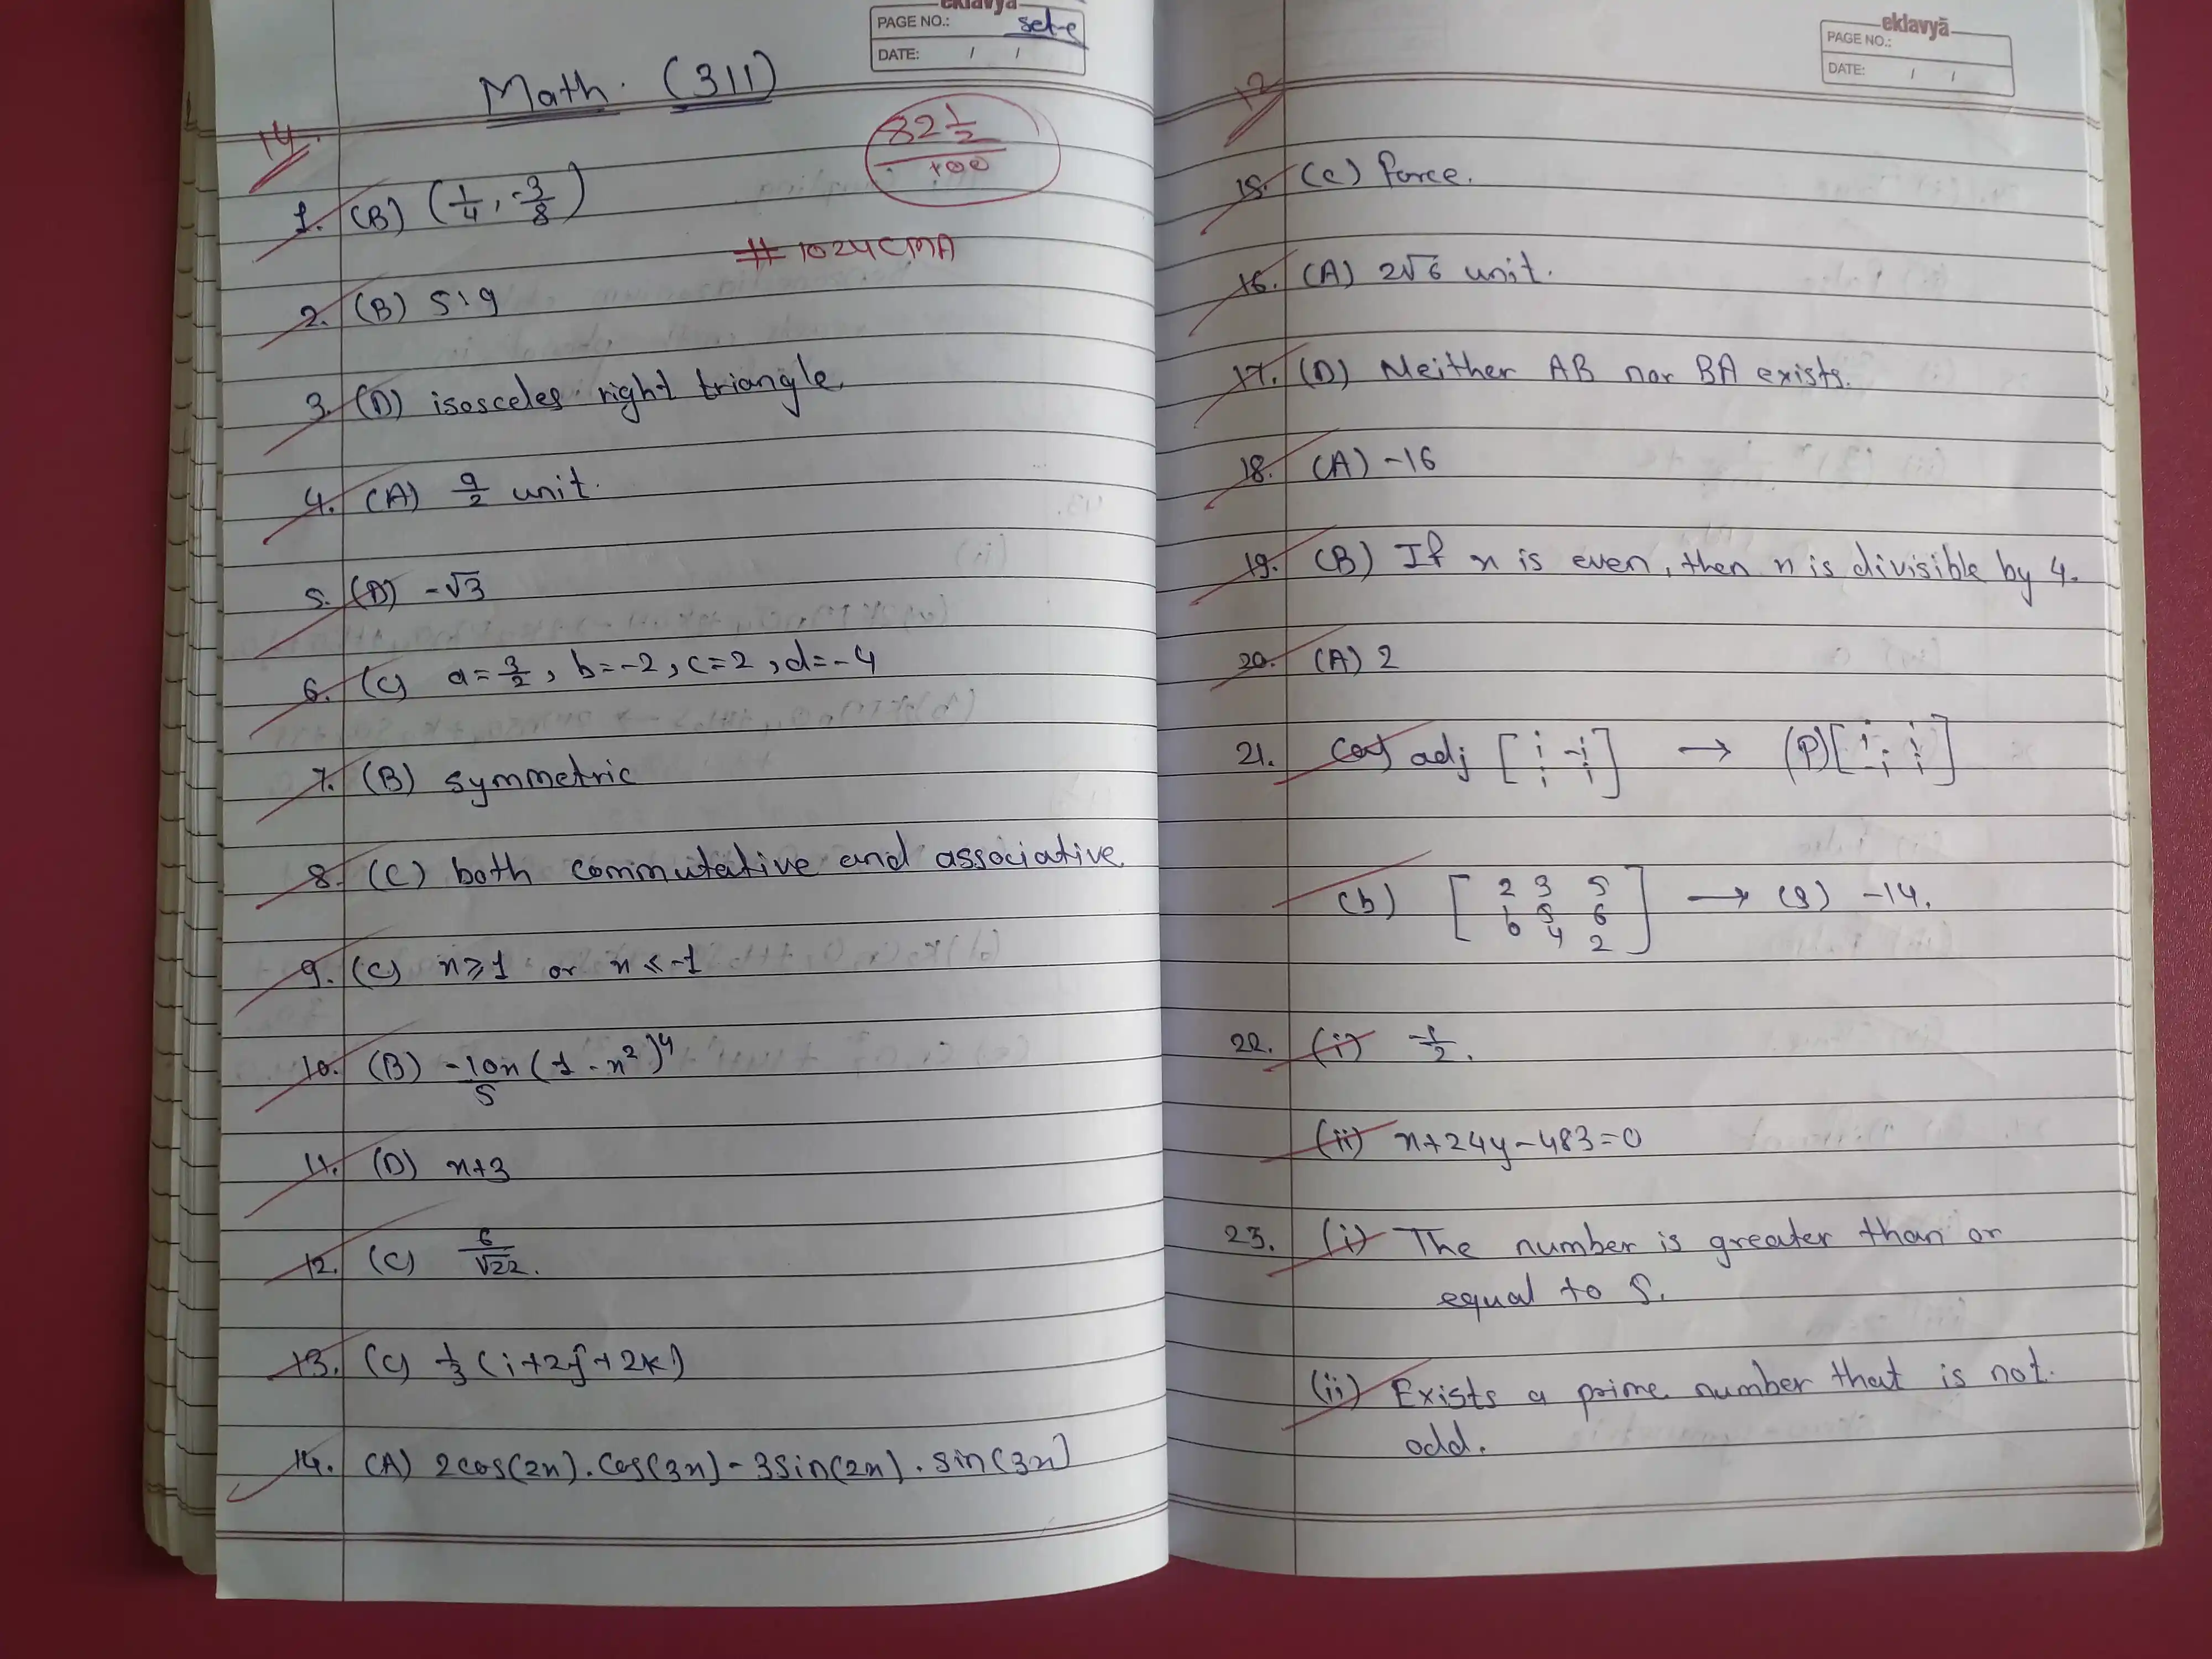 eklavya
PAGE NO.: set-c
DATE: / /
Math. (311)
14
82 1/2
100
1. (B) (1/4, -3/8)
# 1024CMA
2. (B) 5:9
3. (D) isosceles right triangle.
4. (A) 9/2 unit.
5. (D) -√3
6. (C) a=3/2, b=-2, c=2, d=-4
7. (B) symmetric
8. (C) both commutative and associative.
9. (C) x≥1 or x≤-1
10. (B) -10x(1-x²)⁴
5
11. (D) x+3
12. (C) 6/√22.
13. (C) 1/3 (i+2j+2k)
14. (A) 2cos(2x).cos(3x)-3sin(2x).sin(3x)
eklavyā
PAGE NO.:
DATE: / /
12
15. (C) Force.
16. (A) 2√6 unit.
17. (D) Neither AB nor BA exists.
18. (A) -16
19. (B) If n is even, then n is divisible by 4.
20. (A) 2
21. (a) adj [i -i → (P) [i i
i i] -i i]
(b) [2 3 5
6 5 6 → (S) -14.
4 2]
22. (i) -1/2.
(ii) x+24y-483=0
23. (i) The number is greater than or
equal to 5.
(ii) Exists a prime number that is not
odd.